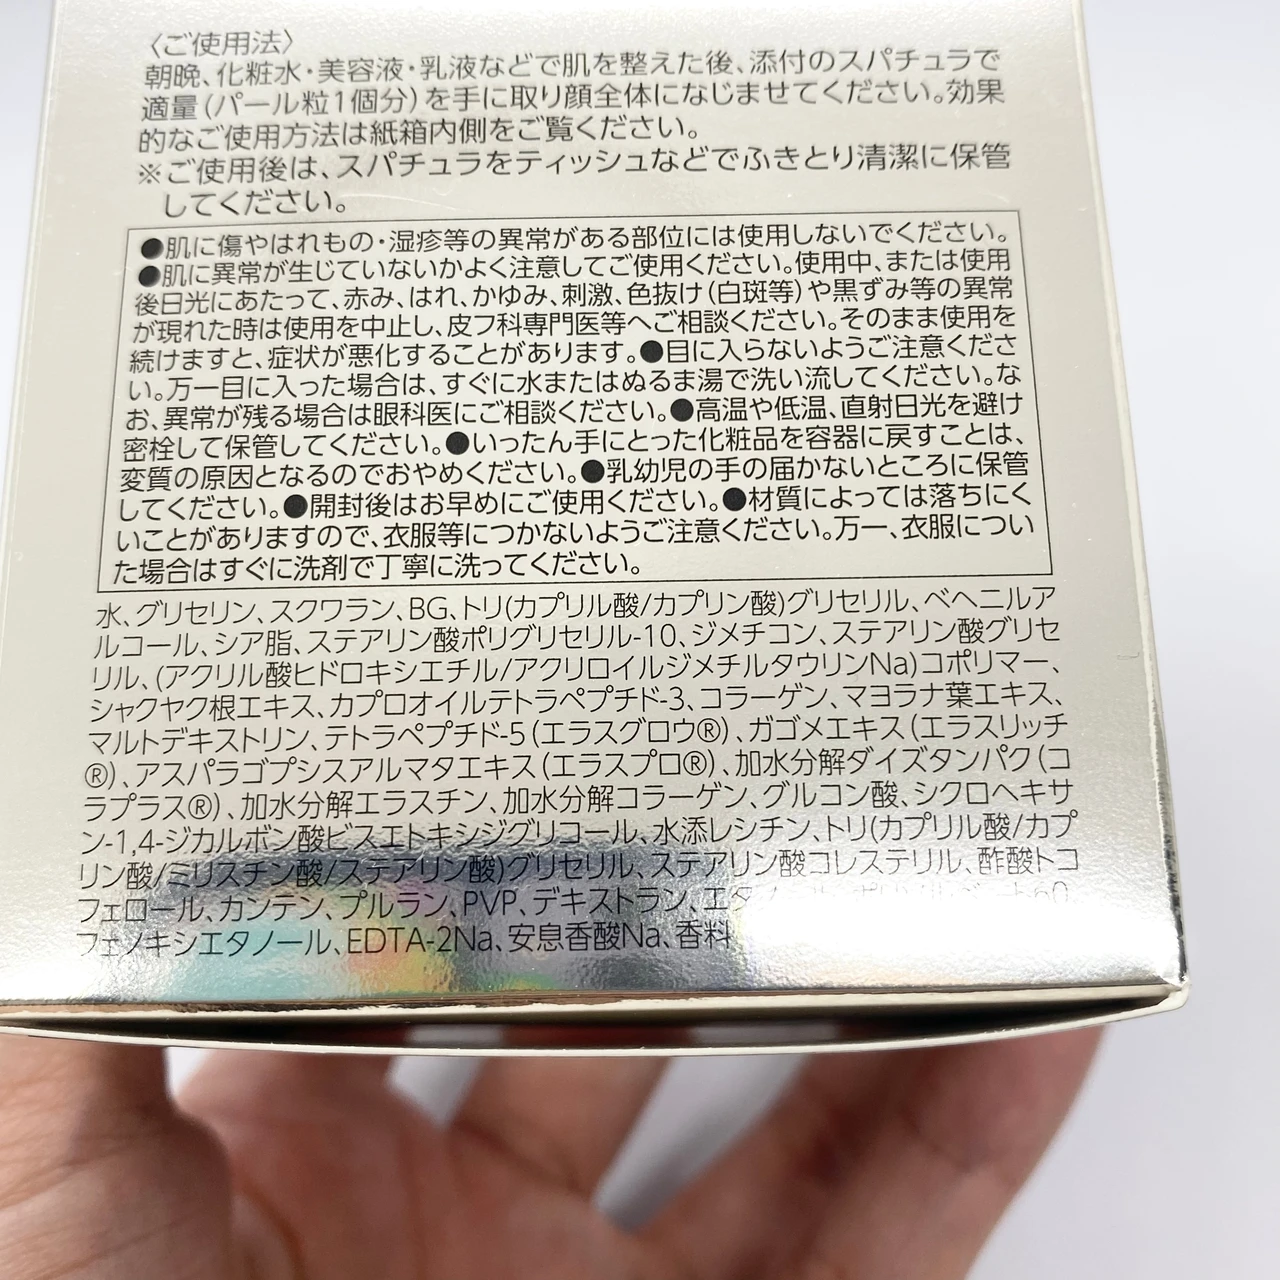 〈ご使用法〉
朝晩、化粧水・美容液・乳液などで肌を整えた後、添付のスパチュラで
適量(パール粒1個分)を手に取り顔全体になじませてください。効果
的なご使用方法は紙箱内側をご覧ください。
※ご使用後は、スパチュラをティッシュなどでふきとり清潔に保管
してください。
●肌に傷やはれもの・湿疹等の異常がある部位には使用しないでください。
●肌に異常が生じていないかよく注意してご使用ください。使用中、または使用
後日光にあたって、赤み、はれ、かゆみ、刺激、色抜け(白斑等)や黒ずみ等の異常
が現れた時は使用を中止し、皮フ科専門医等へご相談ください。そのまま使用を
続けますと、症状が悪化することがあります。●目に入らないようご注意くださ
い。万一目に入った場合は、すぐに水またはぬるま湯で洗い流してください。な
お、異常が残る場合は眼科医にご相談ください。●高温や低温、直射日光を避け
密栓して保管してください。●いったん手にとった化粧品を容器に戻すことは、
変質の原因となるのでおやめください。●乳幼児の手の届かないところに保管
してください。●開封後はお早めにご使用ください。●材質によっては落ちにく
いことがありますので、衣服等につかないようご注意ください。万一、衣服につい
た場合はすぐに洗剤で丁寧に洗ってください。
水、グリセリン、スクワラン、BG、トリ(カプリル酸/カプリン酸)グリセリル、ベヘニルア
ルコール、シア脂、ステアリン酸ポリグリセリル-10、ジメチコン、ステアリン酸グリセ
リル、(アクリル酸ヒドロキシエチル/アクリロイルジメチルタウリンNa)コポリマー、
シャクヤク根エキス、カプロオイルテトラペプチド-3、コラーゲン、マヨラナ葉エキス、
マルトデキストリン、テトラペプチド-5(エラスグロウ®)、ガゴメエキス(エラスリッチ
®)、アスパラゴプシスアルマタエキス(エラスプロ®)、加水分解ダイズタンパク(コ
ラプラス®)、加水分解エラスチン、加水分解コラーゲン、グルコン酸、シクロヘキサ
ン-1,4-ジカルボン酸ビスエトキシジグリコール、水添レシチン、トリ(カプリル酸/カプ
リン酸/ミリスチン酸/ステアリン酸)グリセリル、ステアリン酸コレステリル、酢酸トコ
フェロール、カンテン、プルラン、PVP、デキストラン、
フェノキシエタノール、EDTA-2Na、安息香酸Na、香料